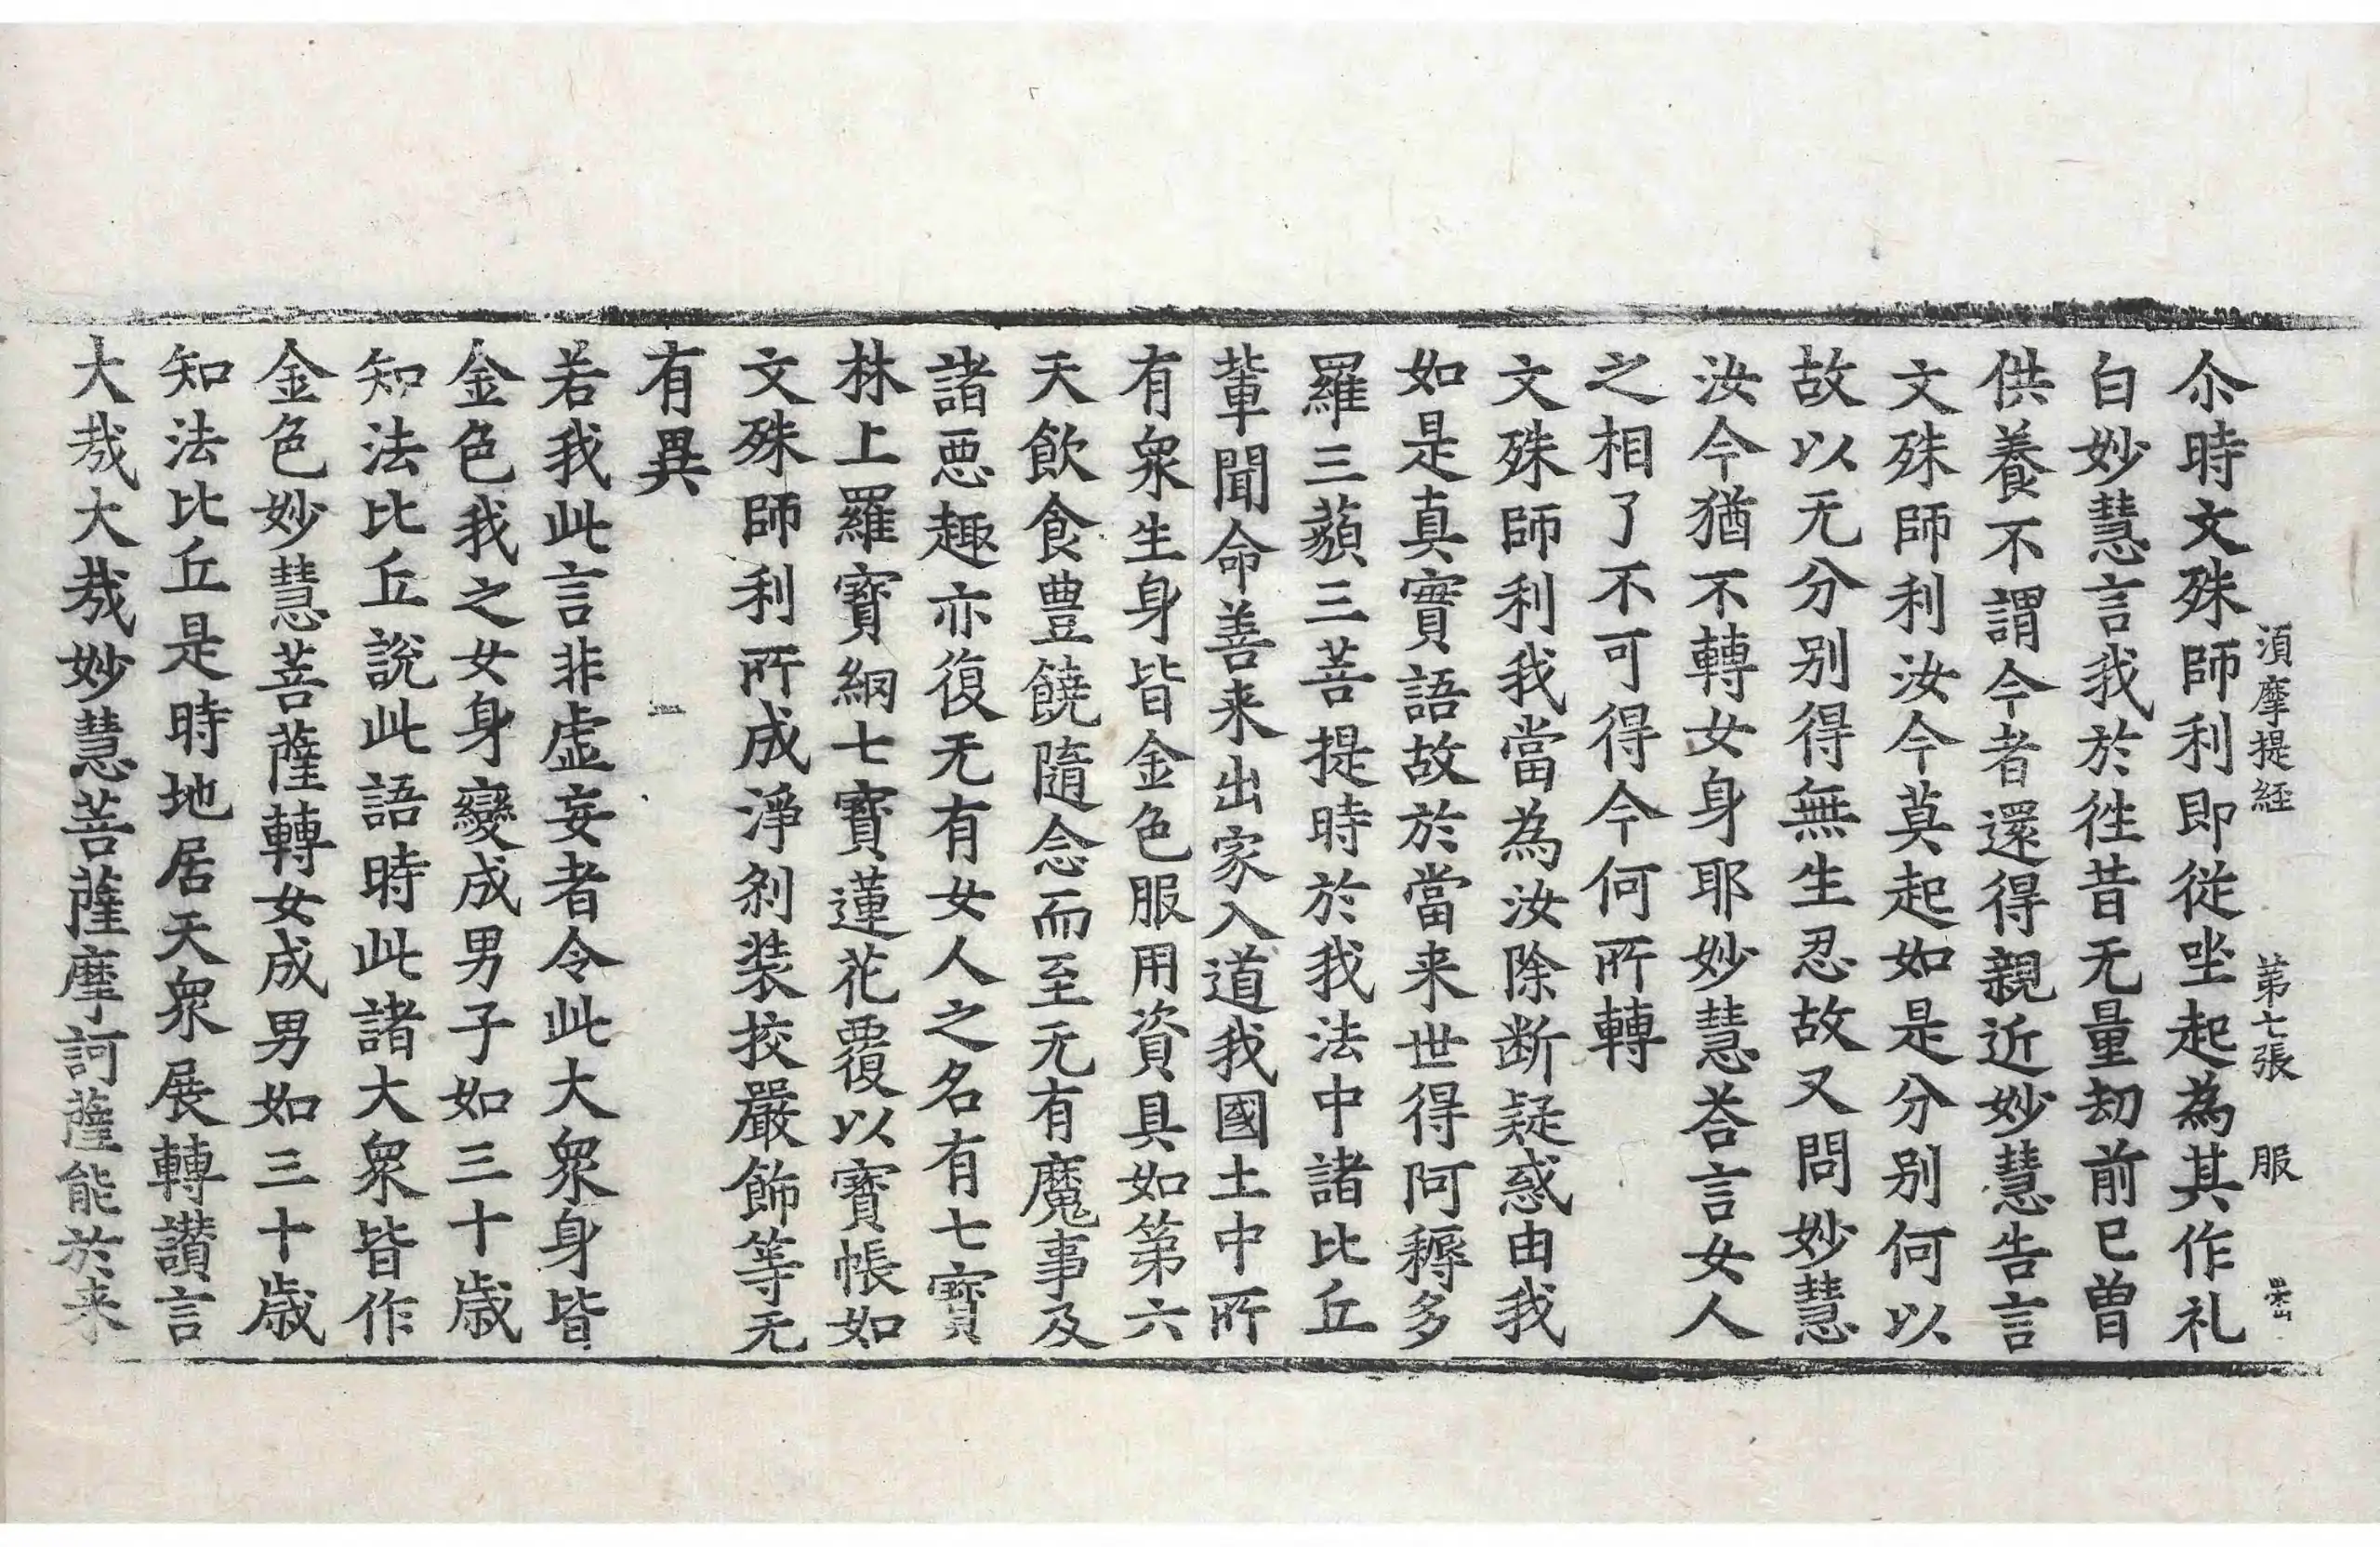 須摩提経 第七張 服
尒時文殊師利即從坐起為其作礼
白妙慧言我於徃昔无量劫前已曾
供養不謂今者還得親近妙慧告言
文殊師利汝今莫起如是分别何以
故以无分别得無生忍故又問妙慧
汝今猶不轉女身耶妙慧荅言女人
之相了不可得今何所轉
文殊師利我當為汝除断疑惑由我
如是真實語故於當来世得阿耨多
羅三藐三菩提時於我法中諸比丘
軰聞命善来出家入道我國土中所
有衆生身皆金色服用資具如第六
天飲食豊饒隨念而至无有魔事及
諸悪趣亦復无有女人之名有七寶
林上羅寶網七寶蓮花覆以寶帳如
文殊師利所成淨刹装挍嚴飾等无
有異
若我此言非虚妄者令此大衆身皆
金色我之女身變成男子如三十歳
知法比丘說此語時此諸大衆皆作
金色妙慧菩薩轉女成男如三十歳
知法比丘是時地居天衆展轉讃言
大㦲大㦲妙慧菩薩摩訶薩能於来